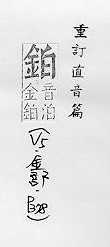 重訂直音篇
鉑
音泊
金鉑
(V5·金部·B28)